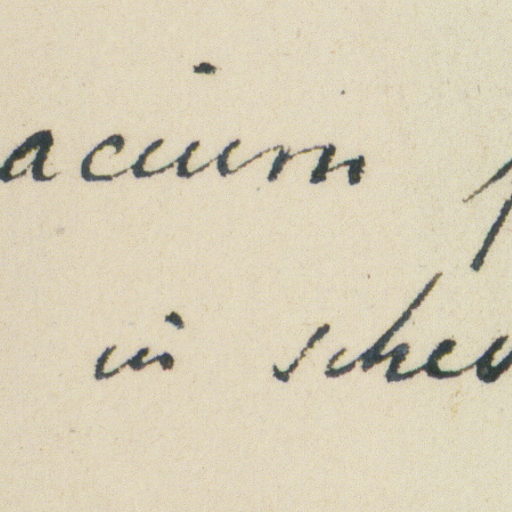 acium
in sche